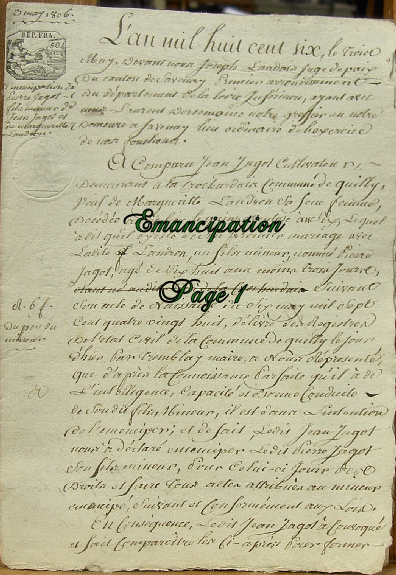 3 may 1806.
REP. FRA.
50
Emancipation de
Pierre Jagot
fils mineur de
Jean Jagot et
de Marguerite
Landron.
L'an mil huit cent six, le trois
May, Devant nous Joseph Landois Juge de paix
Du canton de Savenay arrondissement
du département de la Loire Inferieure, ayant avec
nous Laurent notre greffier en notre
Demeure a Savenay lieu ordinaire de l'exercice
de nos fonctions.
A Comparu Jean Jagot Cultivateur,
Demeurant à la Commune de quilly,
Veuf de Marguerite Landron Sa feue femme,
Décédée lequel
a dit qu'il mariage avec
Ladite Landron, un fils mineur, nommé Pierre
Jagot, agé de dix huit ans moins trois jours,
Suivant
Son acte de Naissance du Six may mil Sept
Cent quatre vingt huit, délivré des Registres
de l'etat Civil de la Commune de quilly le jour
D'hier par tremblay maire, a Nous Représenté,
que d'après la Connoissance Parfaite qu'il a de
L'intelligence, Capacité et Bonne Conduite
de Son dit fils Mineur, il est dans L'intention
de l'emanciper; et de fait Ledit Jean Jagot
nous a déclaré emanciper Ledit Pierre Jagot
Son fils mineur, Pour Celui-ci Jouir des
Droits et faire tous actes attribués au mineur
emancipé, Suivant et Conformement aux Loix.
En Conséquence, Ledit Jean Jagot a Convoqué
et fait Comparoître les Ci-après Pour former
R. 6 f.
Du pere du
mineur
Emancipation
Page 1